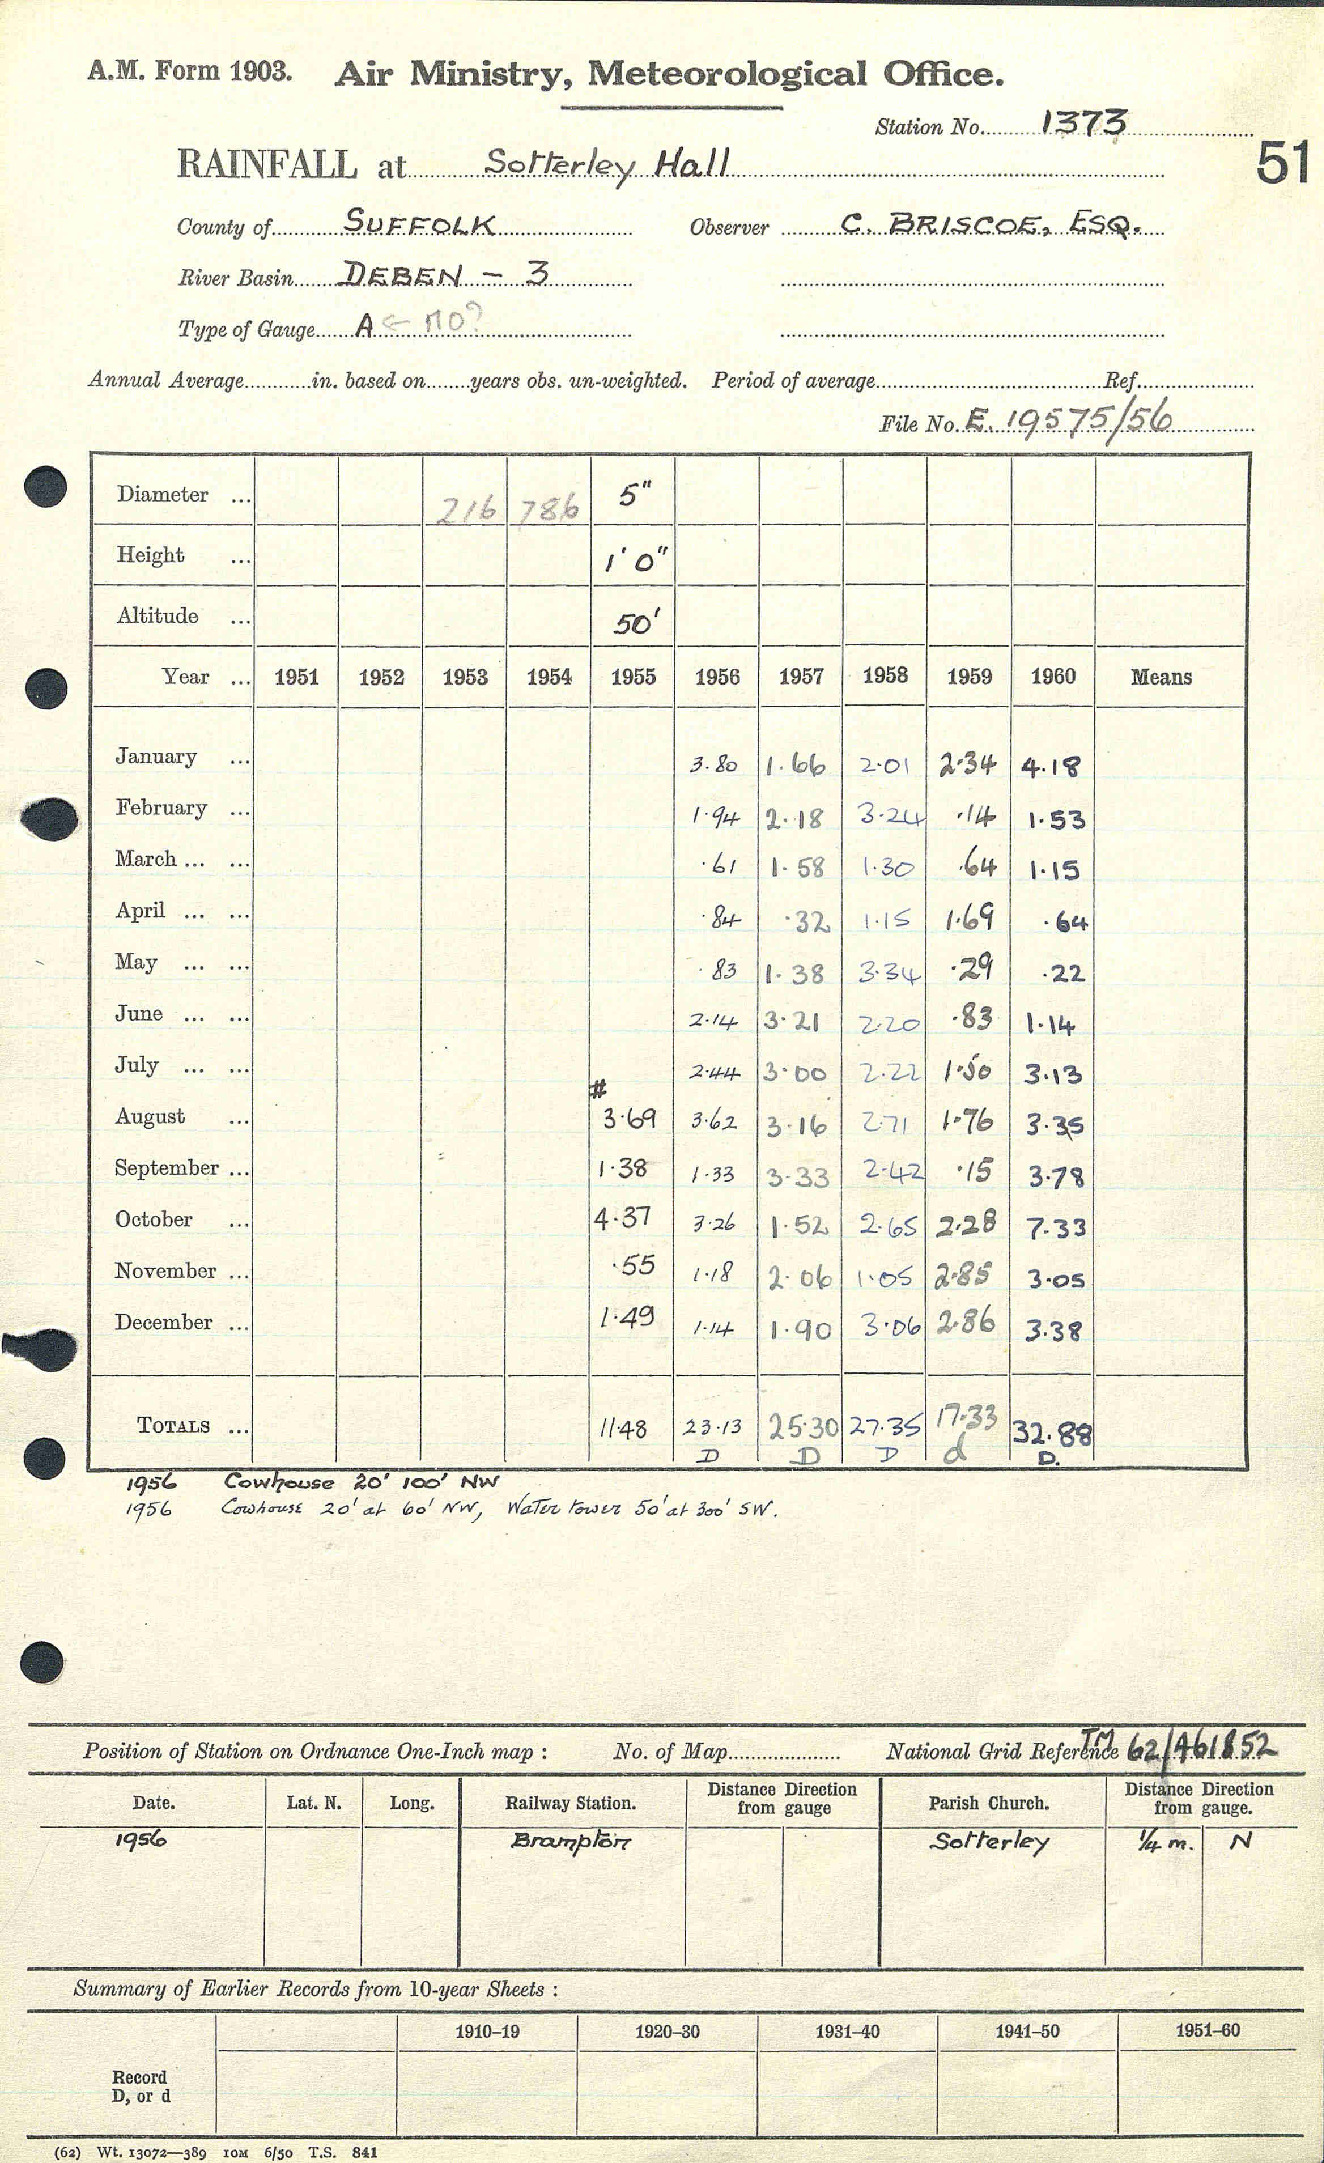 A.M. Form 1903. Air Ministry, Meteorological Office.
Station No. 1373
51
RAINFALL at Sotterley Hall
County of SUFFOLK Observer C. BRISCOE, ESQ.
River Basin DEBEN - 3
Type of Gauge A ← MO?
Annual Average in. based on years obs. un-weighted. Period of average Ref.
File No. E. 19575/56
Diameter ... 216 786 5"
Height ... 1' 0"
Altitude ... 50'
Year ... 1951 1952 1953 1954 1955 1956 1957 1958 1959 1960 Means
January ... 3.80 1.66 2.01 2.34 4.18
February ... 1.94 2.18 3.24 .14 1.53
March ... ... .61 1.58 1.30 .64 1.15
April ... ... .84 .32 1.15 1.69 .64
May ... ... .83 1.38 3.34 .29 .22
June ... ... 2.14 3.21 2.20 .83 1.14
July ... ... 2.44 3.00 2.22 1.50 3.13
#
August ... 3.69 3.62 3.16 2.71 1.76 3.35
September ... 1.38 1.33 3.33 2.42 .15 3.78
October ... 4.37 3.26 1.52 2.65 2.28 7.33
November ... .55 1.18 2.06 1.05 2.85 3.05
December ... 1.49 1.14 1.90 3.06 2.86 3.38
TOTALS ... 11.48 23.13 25.30 27.35 17.33 32.88
D D D d D.
1956 Cowhouse 20' 100' NW
1956 Cowhouse 20' at 60' NW, Water tower 50' at 300' SW.
Position of Station on Ordnance One-Inch map : No. of Map National Grid Reference TM 62/461852
Date. Lat. N. Long. Railway Station. Distance from gauge Direction Parish Church. Distance from gauge. Direction
1956 Brampton Sotterley ¼ m. N
Summary of Earlier Records from 10-year Sheets :
1910–19 1920–30 1931–40 1941–50 1951–60
Record
D, or d
(62) Wt. 13072—389 10M 6/50 T.S. 841